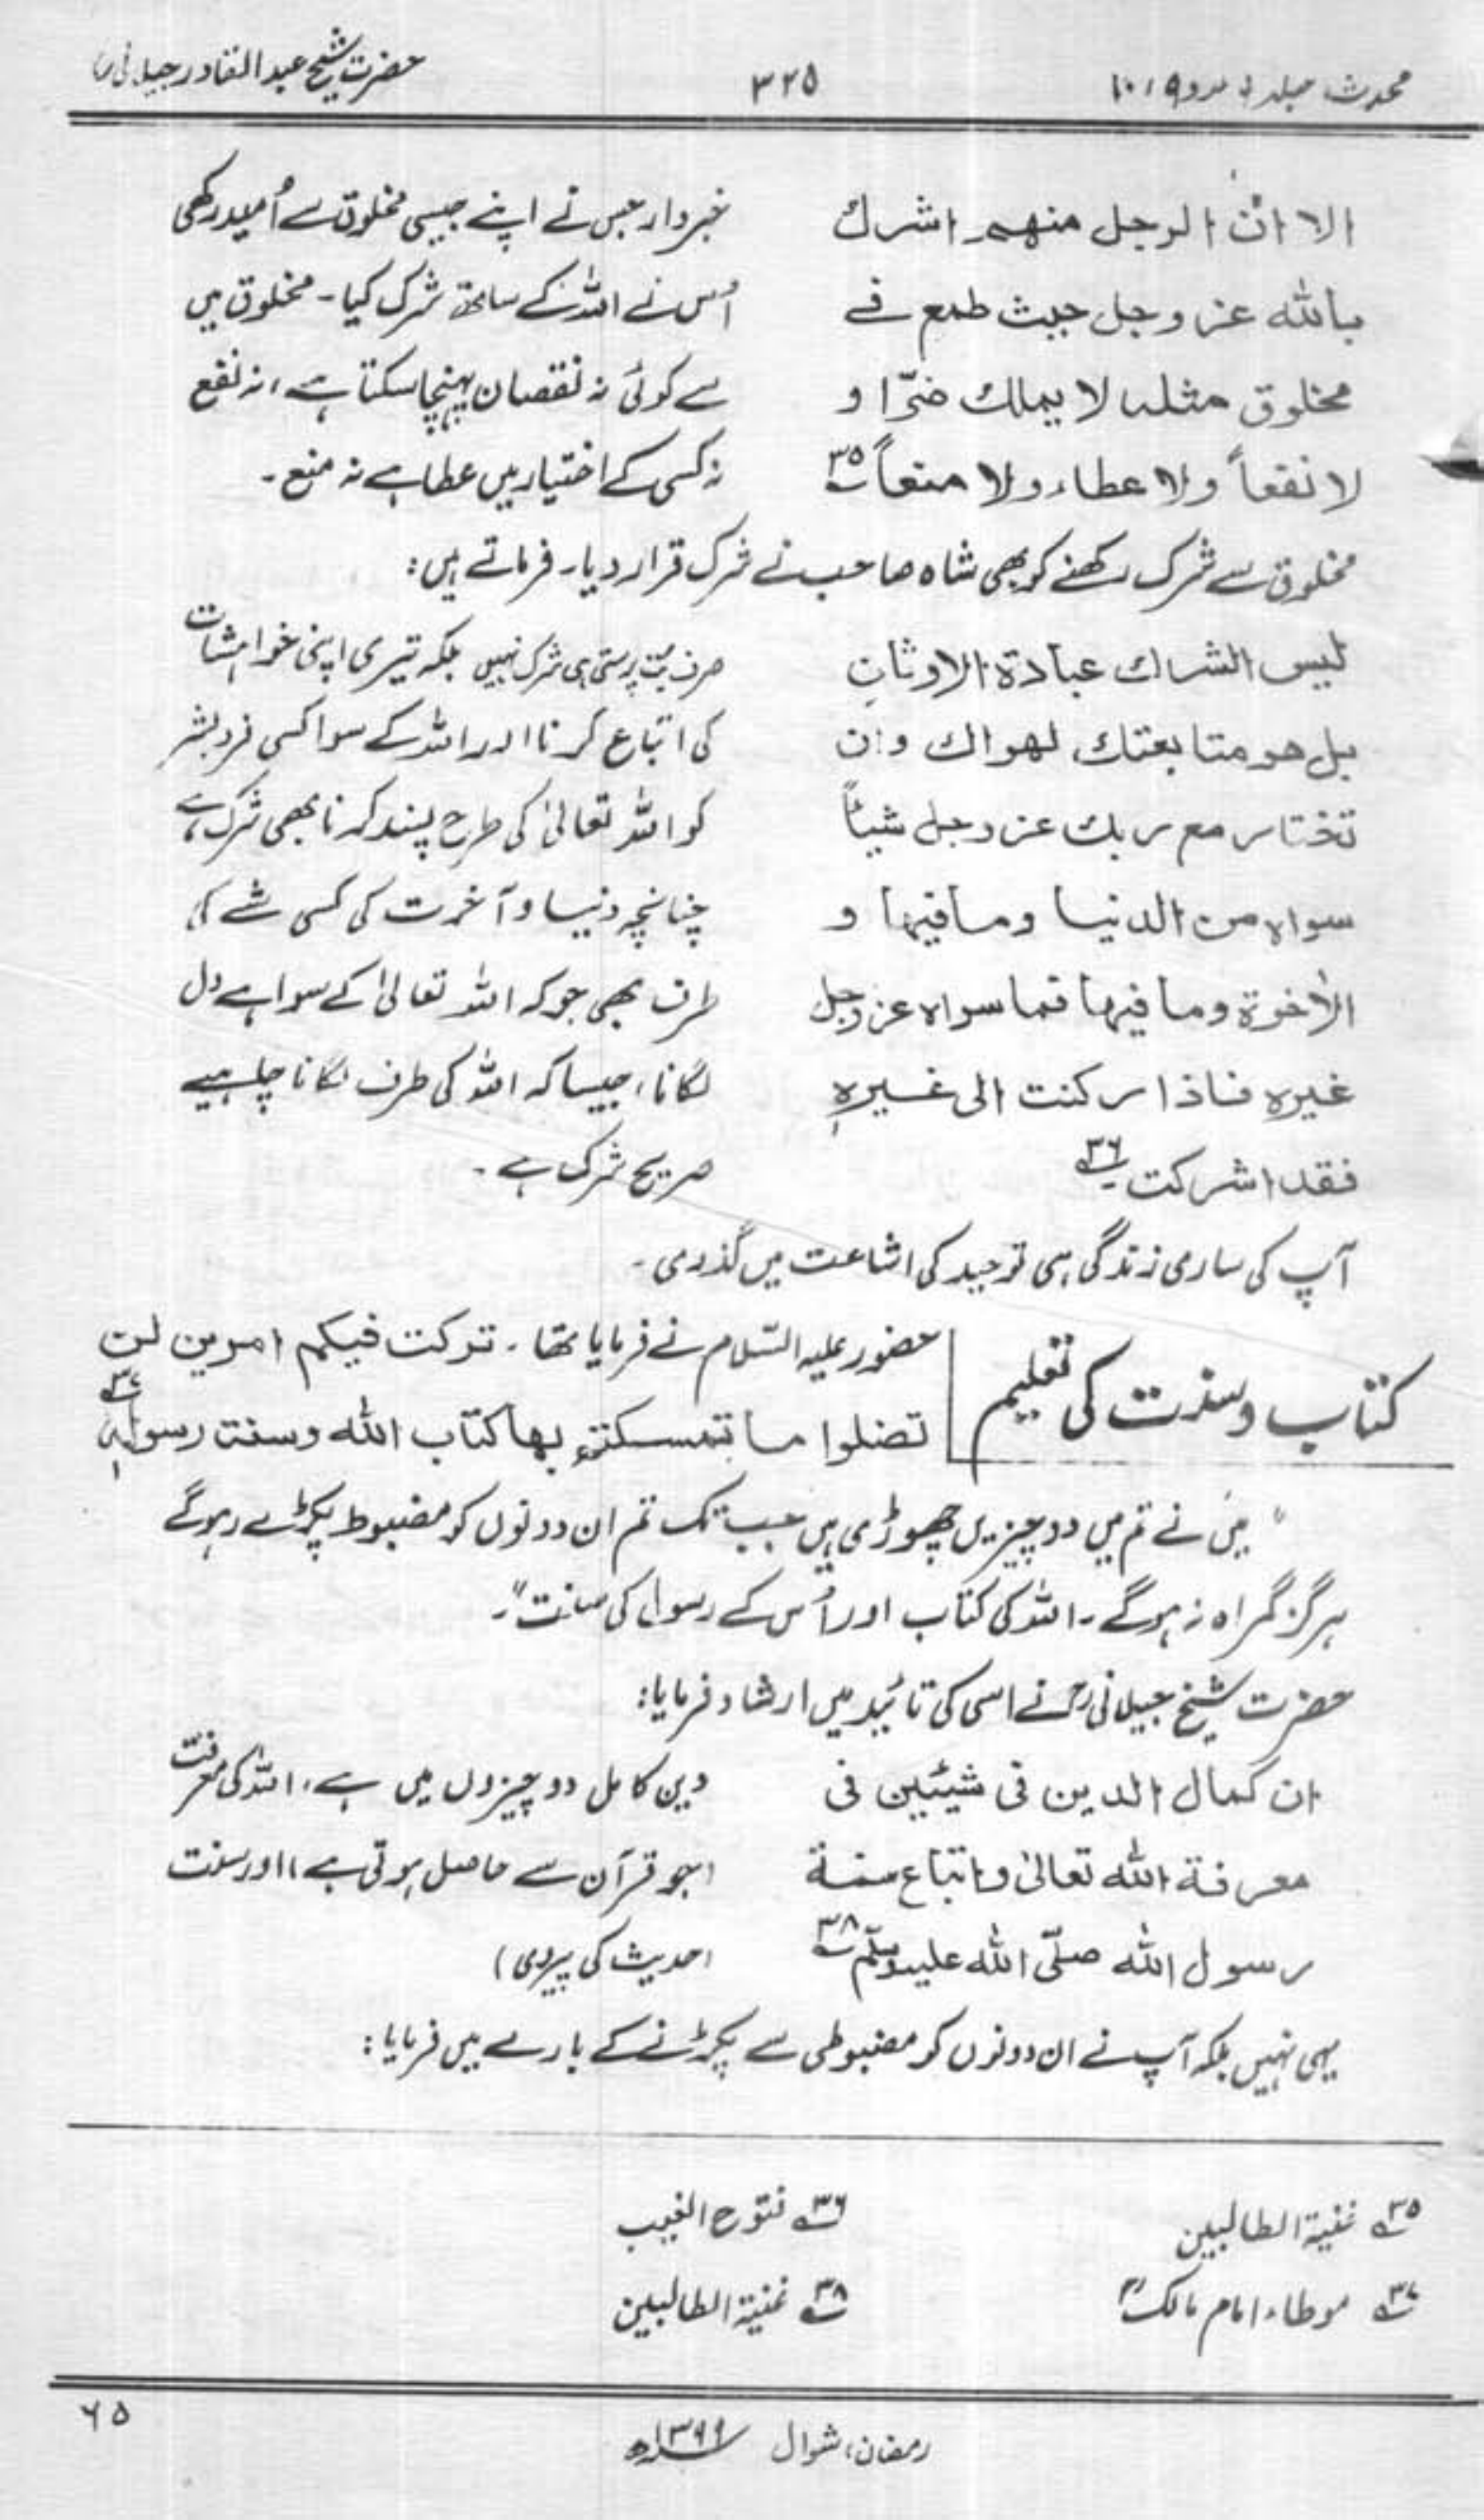 محدث جلد ۹ عدد ۹، ۱۰
۳۲۵
حضرت شیخ عبدالقادر جیلانیؒ
الا ان الرجل منهم اشرك
بالله عز وجل حيث طمع في
مخلوق مثله لا يملك ضرّا و
لا نفعاً ولا عطاء ولا منعاً ۳۵
خبردار جس نے اپنے جیسی مخلوق سے اُمید رکھی
اُس نے اللہ کے ساتھ شرک کیا۔ مخلوق میں
سے کوئی نہ نقصان پہنچا سکتا ہے، نہ نفع
نہ کسی کے اختیار میں عطا ہے نہ منع۔
مخلوق سے شرک رکھنے کو بھی شاہ صاحب نے شرک قرار دیا۔ فرماتے ہیں:
ليس الشراك عبادة الاوثانِ
بل هو متابعتك لهواك وان
تختار مع ربك عز وجل شيئاً
سواه من الدنيا وما فيها و
الاٰخرة وما فيها فما سواه عز وجل
غيره فاذا ركنت الى غيرهٖ
فقد اشركت ۳۶
صرف بت پرستی ہی شرک نہیں بلکہ تیری اپنی خواہشات
کی اتباع کرنا اور اللہ کے سوا کسی فرد بشر
کو اللہ تعالیٰ کی طرح پسند کرنا بھی شرک ہے
چنانچہ دنیا و آخرت کی کسی شے کی
طرف بھی جو کہ اللہ تعالیٰ کے سوا ہے دل
لگانا، جیسا کہ اللہ کی طرف لگانا چاہیے
صریح شرک ہے۔
آپ کی ساری زندگی ہی توحید کی اشاعت میں گذری۔
کتاب وسنت کی تعلیم
حضور علیہ السّلام نے فرمایا تھا۔ تركت فيكم امرين لن
تضلوا ما تمسكتم بهما كتاب الله وسنت رسولهٖ ۳۷
" میں نے تم میں دو چیزیں چھوڑی ہیں جب تک تم ان دونوں کو مضبوط پکڑے رہو گے
ہرگز گمراہ نہ ہو گے۔ اللہ کی کتاب اور اُس کے رسول کی سنت"۔
حضرت شیخ جیلانیؒ نے اسی کی تائید میں ارشاد فرمایا:
ان كمال الدين فى شيئين فى
معرفة الله تعالىٰ واتباع سنة
رسول الله صلّى الله عليه وسلّم ۳۸
دین کامل دو چیزوں میں ہے، اللہ کی معرفت
(جو قرآن سے حاصل ہوتی ہے) اور سنت
(حدیث کی پیروی)
یہی نہیں بلکہ آپ نے ان دونوں کو مضبوطی سے پکڑنے کے بارے میں فرمایا:
۳۵ غنیۃ الطالبین
۳۶ فتوح الغیب
۳۷ موطاء امام مالکؒ
۳۸ غنیۃ الطالبین
۶۵
رمضان، شوال ۱۳۹۹ھ